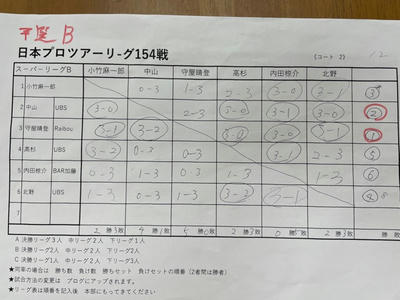 予選 B
日本プロツアーリーグ154戦
(コート 2) 12
スーパーリーグB 小竹麻一郎 中山 守屋晴登 高杉 内田椋介 北野
1 小竹麻一郎 0-3 1-3 2-3 3-0 3-1 ③
2 中山 UBS 3-0 2-3 3-0 3-1 3-0 ②
3 守屋晴登 Raibou 3-1 3-2 3-0 3-0 3-1 ①
4 高杉 UBS 3-2 0-3 0-3 3-1 2-3 ⑤
5 内田椋介 BAR加藤 0-3 1-3 0-3 1-3 1-3 ⑥
6 北野 UBS 1-3 0-3 1-3 3-2 3-1 ④
7
2勝3敗 4勝1敗 5勝0敗 2勝3敗 0勝5敗 2勝3敗
A 決勝リーグ3人 中リーグ2人 下リーグ1人
B 決勝リーグ2人 中リーグ2人 下リーグ2人
C 決勝リーグ1人 中リーグ2人 下リーグ3人
★同率の場合は 勝ち数 負け数 勝ちセット 負けセットの順番(2者間は勝者)
★試合方法の変更は ブログにアップされます。
★リーグ表は順番を記入後 本部にもってきてください